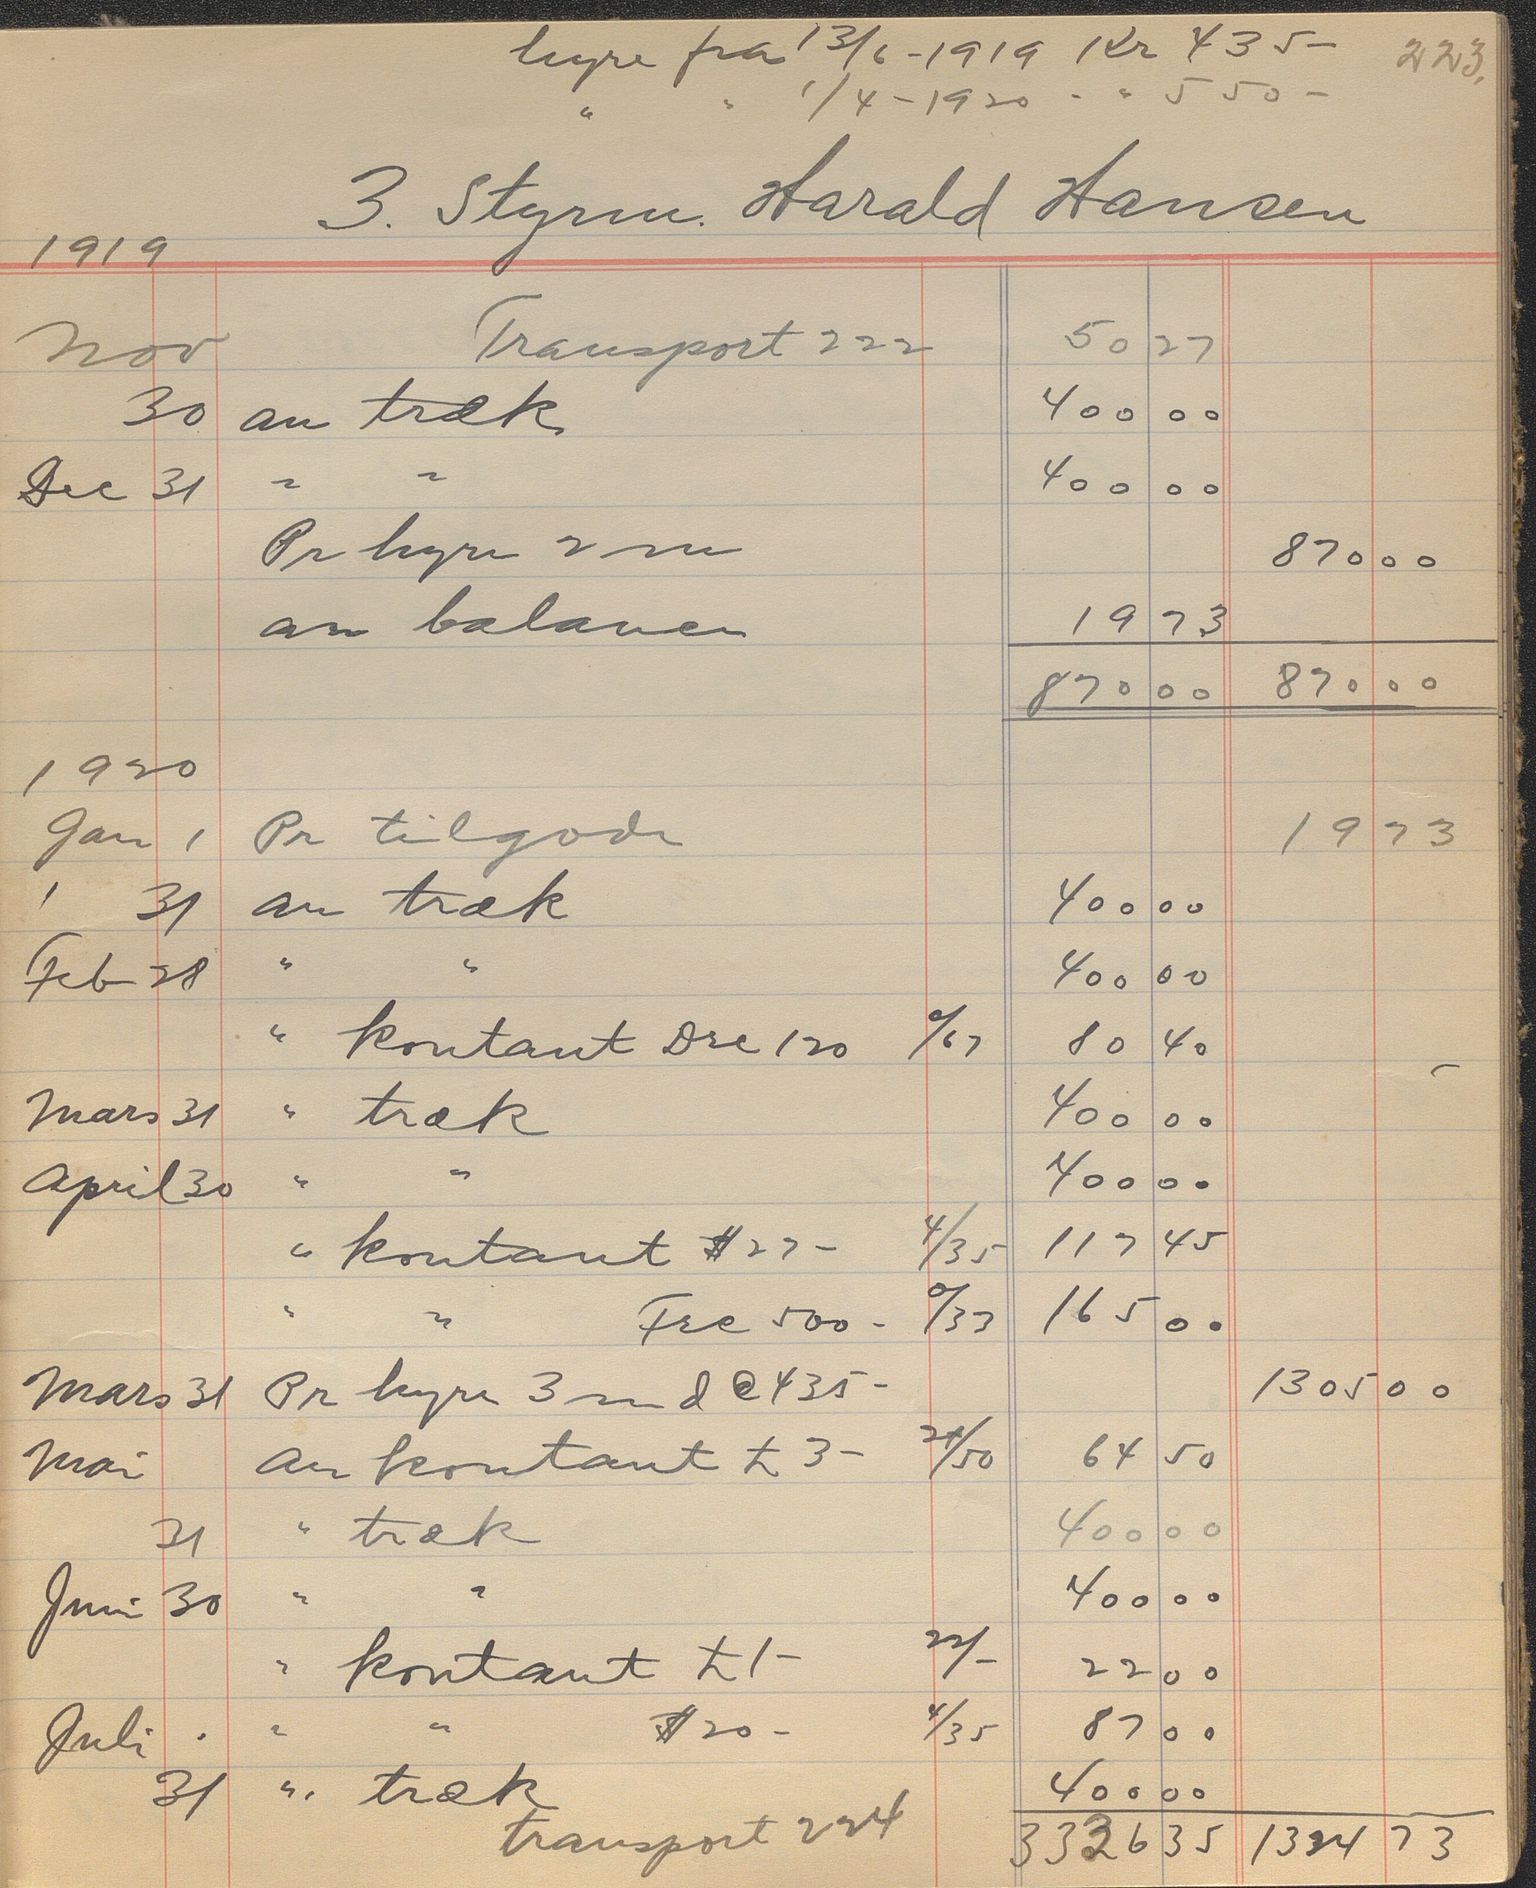 hyre fra 13/6 - 1919 Kr 435 - 223.
" " 1/4 - 1920 - " 550 -
3. Styrm. Harald Hansen
1919
Nov Transport 222 50 27
30 an træk 400 00
Dec 31 " " 400 00
Pr hyre 2 m 870 00
an balance 19 73
870 00 870 00
1920
Jan 1 Pr tilgode 19 73
' 31 an træk 400 00
Feb 28 " " 400 00
" kontant Drc 120 0/67 80 40
Mars 31 " træk 400 00
April 30 " " 400 00
" kontant $ 27 - 4/35 117 45
" " Frc 500 - 0/33 165 00
Mars 31 Pr hyre 3 md @ 435 - 1305 00
Mai an kontant £ 3 - 21/50 64 50
31 " træk 400 00
Juni 30 " " 400 00
" kontant £ 1 - 22/- 22 00
Juli . " " $ 20 - 4/35 87 00
31 " træk 400 00
transport 224 3326 35 1324 73